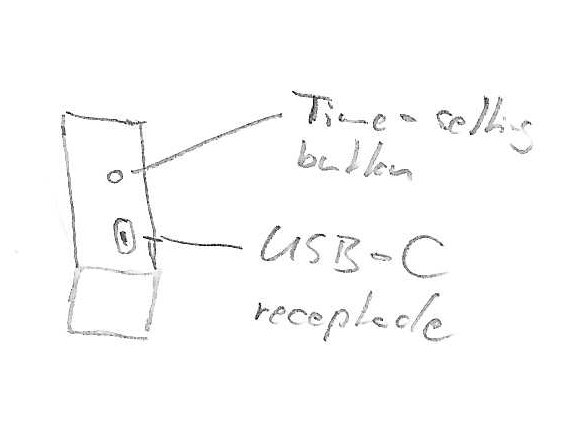 Time-setting
button
USB-C
receptacle